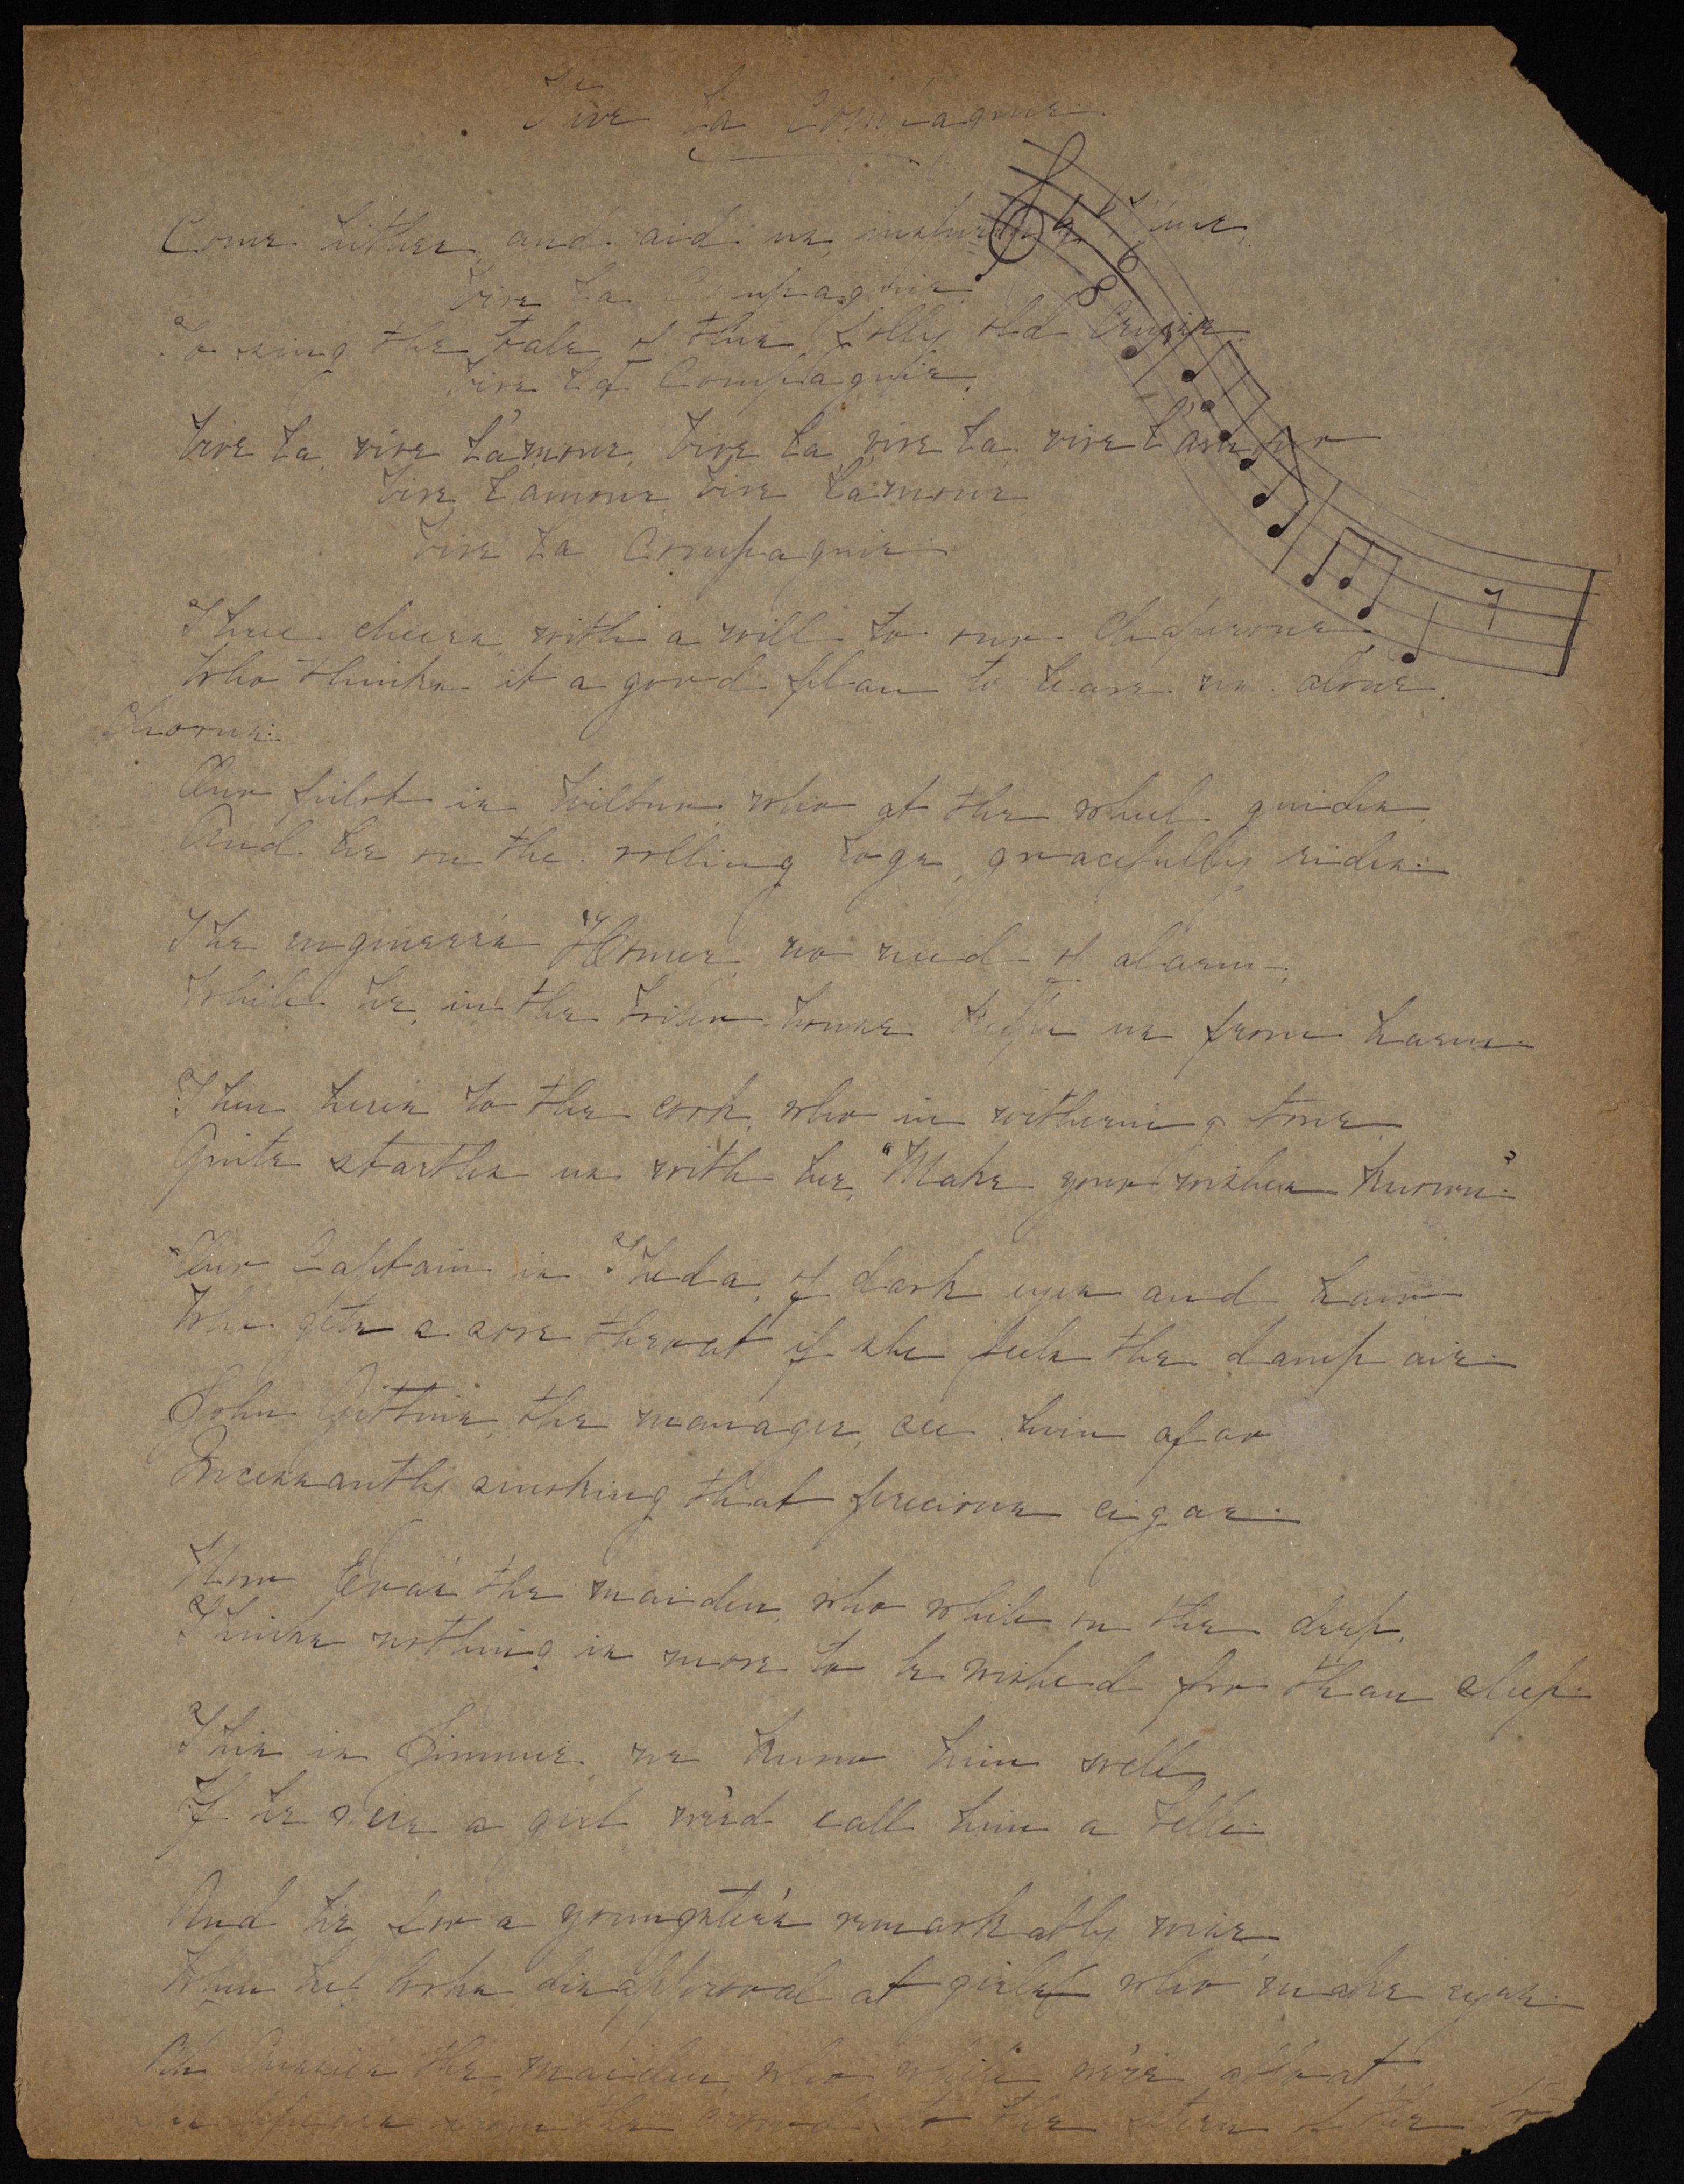 Vive La Compagnie.
Come hither and aid us, inspiring Muse,
Vive La Compagnie.
To sing the tale of this jolly old Cruise.
Vive La Compagnie.
Vive La, vive L'amour, Vive La, vive La, vive L'amour
Vive L'amour, Vive L'amour,
Vive La Compagnie.
6
8
Three cheers with a will to our Chaperone,
Who thinks it a good plan to leave us alone.
Chorus:
Our pilot is Wilbur, who at the wheel guides,
And he on the rolling logs, gracefully rides.
The engineer's Homer, no need of alarm,
While he, in the boiler house keeps us from harm.
Then here's to the cook, who in withering tone,
Quite startles us with her, "Make your wishes known."
Our Captain is Theda, of dark eyes and hair
Who gets a sore throat if she feels the damp air.
John the manager, see him afar
Incessantly smoking that precious cigar.
Now Eva's the maiden, who while on the deep,
Thinks nothing is more to be wished for than sleep.
This is Jimmie, we know him well
If he were a girl we'd call him a belle.
And he for a youngster's remarkably wise,
When he looks disapproval at girls who make eyes.
Oh the maiden, who while we're afloat
from the crowd to the stern of the